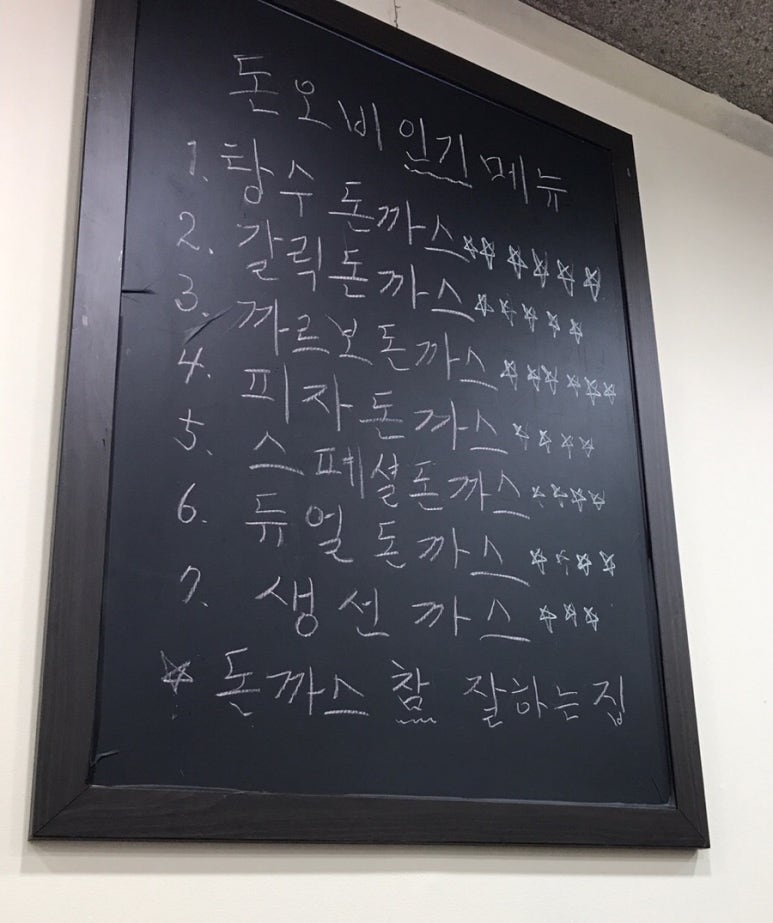 돈오비 인기 메뉴
1. 탕수 돈까스 ☆☆☆☆☆☆
2. 갈릭돈까스 ☆☆☆☆☆
3. 까르보돈까스 ☆☆☆☆☆☆
4. 피자돈까스 ☆☆☆☆
5. 스페셜돈까스 ☆☆☆☆
6. 듀얼돈까스 ☆☆☆☆
7. 생선까스 ☆☆☆
☆ 돈까스 참 잘하는집